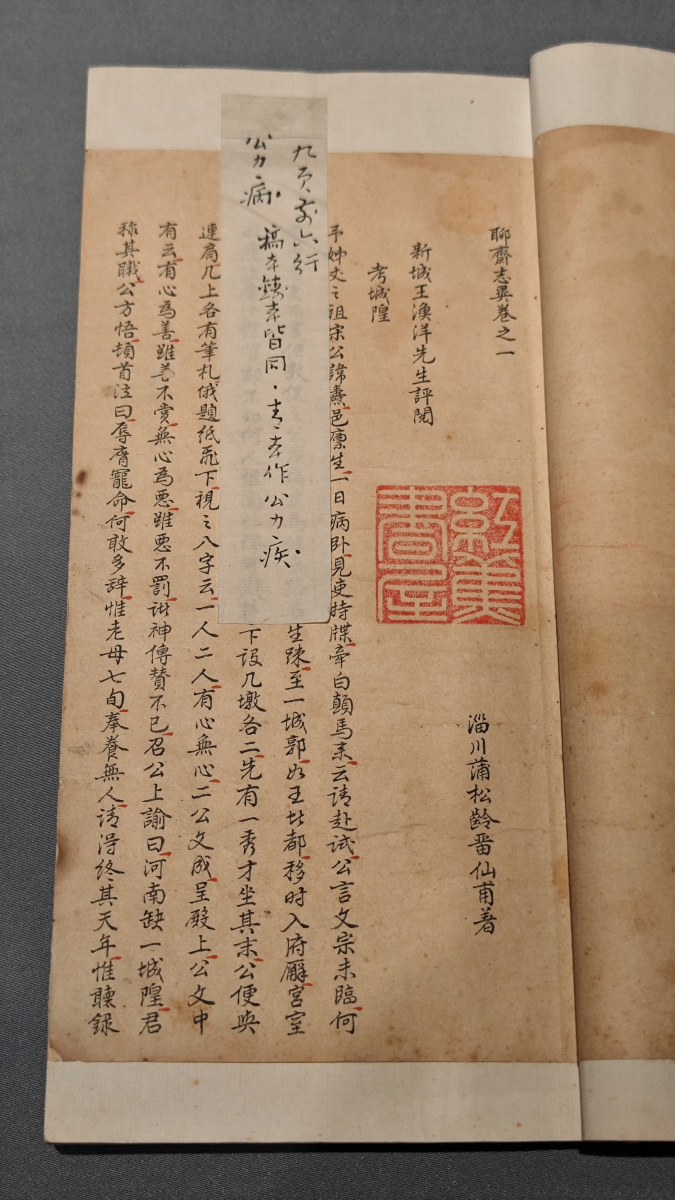 聊齋志異卷之一
淄川蒲松齡畱仙甫著
新城王漁洋先生評閱
考城隍
予姊丈之祖宋公諱燾邑廩生一日病卧見吏持牒牽白顛馬来云请赴试公言文宗未臨何
生踈至一城郭如王都移時入府廨宫室
下設几墩各二先有一秀才坐其末公便與
連肩几上各有筆札俄題紙飛下視之八字云一人二人有心無心二公文成呈殿上公文中
有云有心為善雖善不賞無心為悪雖悪不罰諸神傳贊不已召公上諭曰河南缺一城隍君
稱其職公方悟頓首泣曰辱膺寵命何敢多辞惟老母七旬奉養無人请得終其天年惟聽録
九页前六行
公力病
稿本鑄本皆同·青本作公力疾